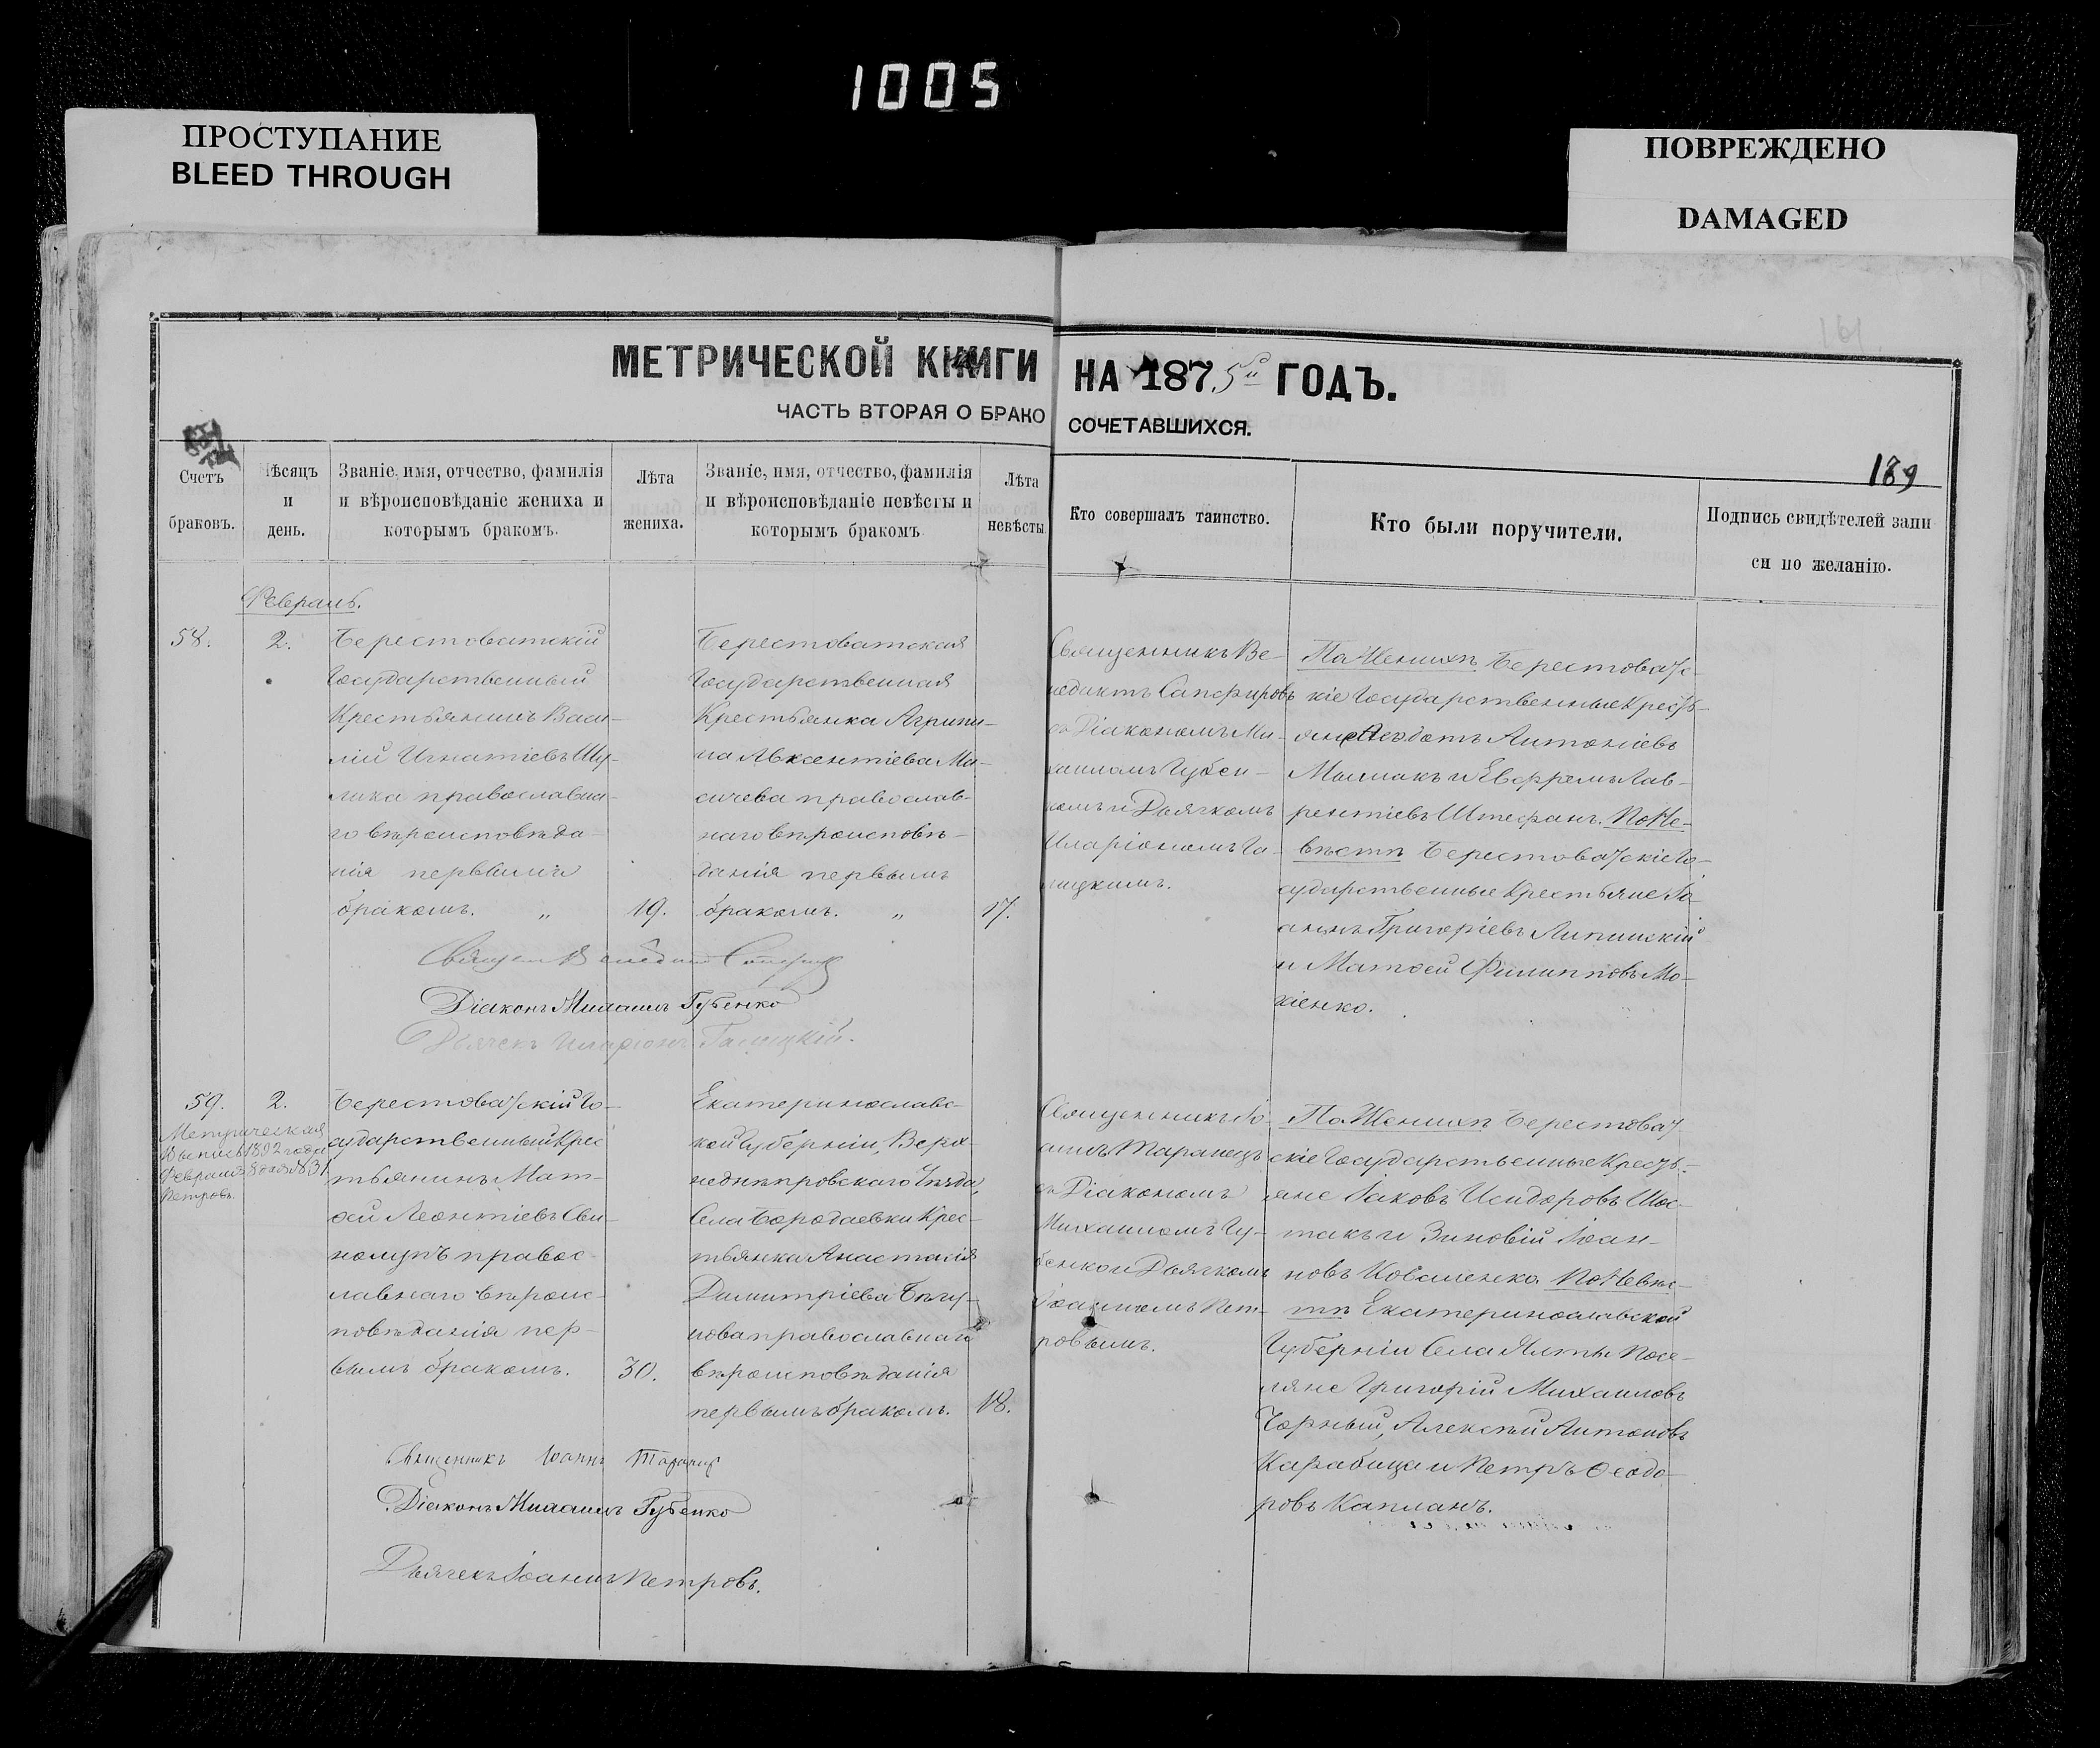 1005
ПРОСТУПАНИЕ
BLEED THROUGH
ПОВРЕЖДЕНО
DAMAGED
МЕТРИЧЕСКОЙ КНИГИ НА 1875й ГОДЪ.
ЧАСТЬ ВТОРАЯ О БРАКОСОЧЕТАВШИХСЯ.
189
Счетъ
браковъ.
Мѣсяцъ
и
день.
Званіе, имя, отчество, фамилія
и вѣроисповѣданіе жениха и
которымъ бракомъ.
Лѣта
жениха.
Званіе, имя, отчество, фамилія
и вѣроисповѣданіе невѣсты и
которымъ бракомъ
Лѣта
невѣсты
Кто совершалъ таинство.
Кто были поручители.
Подпись свидѣтелей запи
си по желанію.
Февраль.
58.
2.
Берестоватскій
Государственный
Крестьянинъ Васи-
лій Игнатіевъ Шу-
лика православна-
го вѣроисповѣда-
нія первымъ
бракомъ. „
19.
Берестоватская
Государственная
Крестьянка Агрипи-
на Авксентіева Ми-
сичева православ-
наго вѣроисповѣ-
данія первымъ
бракомъ. „
17.
Священникъ Ве-
недиктъ Сапфировъ
съ Діакономъ Ми-
хаиломъ Губен-
комъ и Дьячкомъ
Иларіономъ Га-
лицкимъ.
По Женихѣ Берестоват-
кіе Государственные Кресть-
яне Ѳеодотъ Антоніевъ
Малпакъ и Евфремъ Лав-
рентіевъ Штефанъ. По Не-
вѣстѣ Берестоватскіе Го-
сударственные Крестьяне Іо-
аннъ Григоріевъ Липинскій
и Матѳей Филипповъ Мо-
кіенко.
Діаконъ Михаилъ Губенко
Дьячекъ Иларіонъ Галицкій.
59.
2.
Метрическая
выпись 1892 года
Февраля 8 дня № 31
Петровъ.
Берестоватскій Го-
сударственный Крес
тьянинъ Мат-
ѳей Леонтіевъ Сви-
нолупъ правос-
лавнаго вѣроис-
повѣданія пер-
вымъ бракомъ.
30.
Екатеринославс-
кой Губерніи, Верх-
неднѣпровскаго Уѣзда,
Села Бородаевки Крес-
тьянка Анастасія
Димитріева Бѣгу-
нова православнаго
вѣроисповѣданія
первымъ бракомъ.
18.
Священникъ Іо-
аннъ Таранецъ
съ Діакономъ
Михаиломъ Гу-
бенко и Дьячкомъ
Іоанномъ Пет-
ровымъ.
По Женихѣ Берестоват-
скіе Государственные Кресть-
яне Іаковъ Исидоровъ Шос-
такъ и Зиновій Іоан-
новъ Коваленко. По Невѣс-
тѣ Екатеринославской
Губерніи Села Ялты Посе-
ляне Григорій Михаиловъ
Чорный, Алексѣй Антоновъ
Карабица и Петръ Ѳеодо-
ровъ Капланъ.
Священникъ Іоаннъ Таранецъ
Діаконъ Михаилъ Губенко
Дьячекъ Іоаннъ Петровъ.